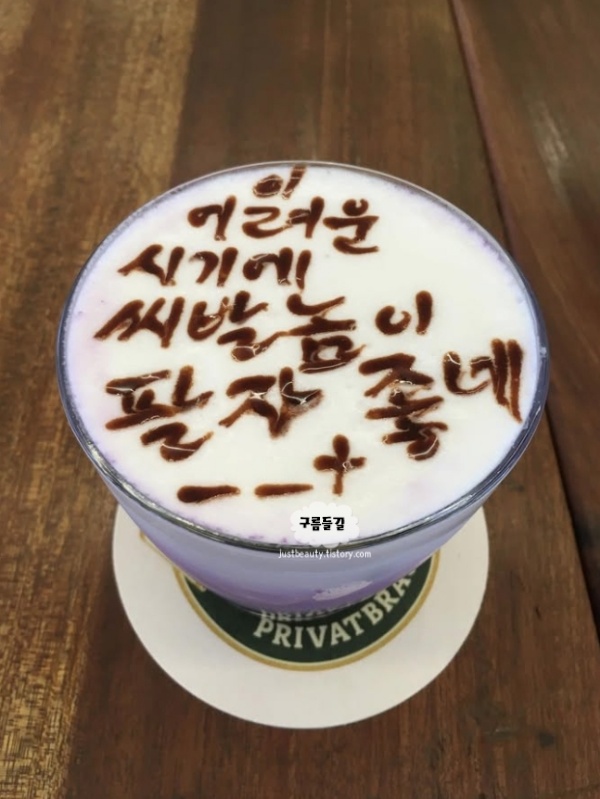 이
어려운
시기에
씨발놈이
팔자 좋네
--+
구름들길
justbeauty.tistory.com
PRIVATBRA